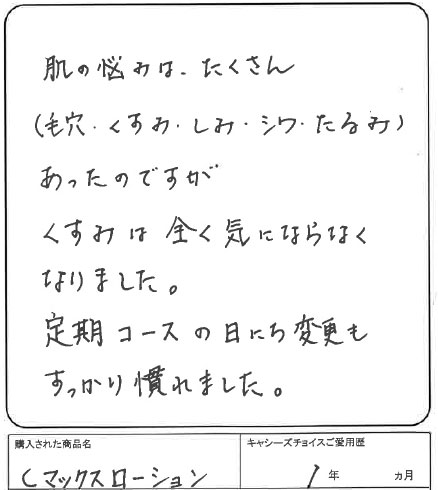 肌の悩みは、たくさん
(毛穴・くすみ・しみ・シワ・たるみ)
あったのですが
くすみは全く気にならなく
なりました。
定期コースの日にち変更も
すっかり慣れました。
購入された商品名
キャシーズチョイスご愛用歴
Cマックスローション
1年 ヵ月